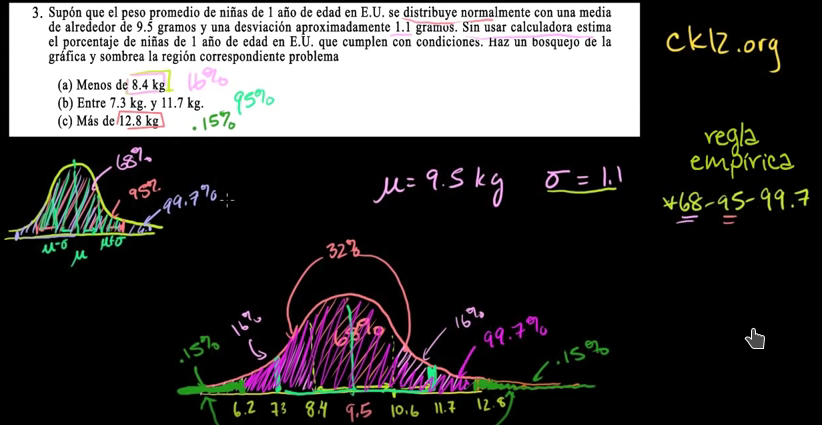 3. Supón que el peso promedio de niñas de 1 año de edad en E.U. se distribuye normalmente con una media
de alrededor de 9.5 gramos y una desviación aproximadamente 1.1 gramos. Sin usar calculadora estima
el porcentaje de niñas de 1 año de edad en E.U. que cumplen con condiciones. Haz un bosquejo de la
gráfica y sombrea la región correspondiente problema
(a) Menos de 8.4 kg 16%
(b) Entre 7.3 kg. y 11.7 kg. 95%
(c) Más de 12.8 kg .15%
ck12.org
regla
empírica
*68-95-99.7
μ = 9.5 kg σ = 1.1
68%
95%
99.7%
μ-σ μ μ+σ
32%
16% 68% 16%
99.7%
.15% .15%
6.2 73 8.4 9.5 10.6 11.7 12.8